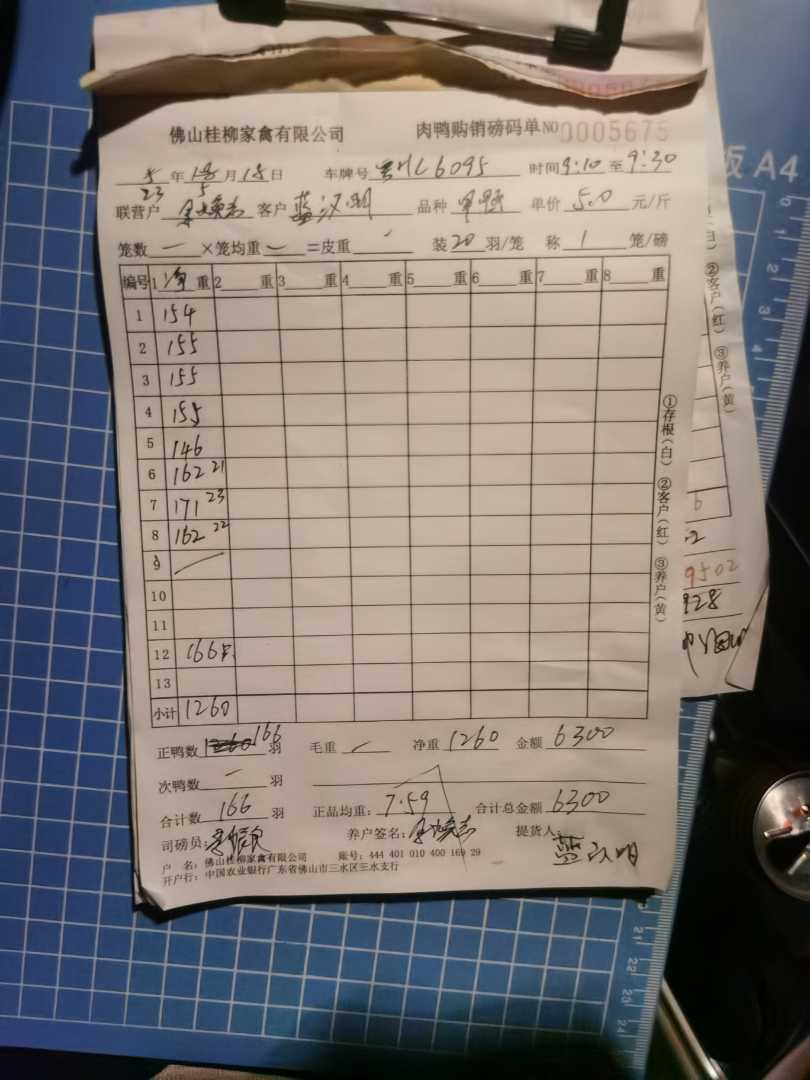 佛山桂柳家禽有限公司 肉鸭购销磅码单 NO 0005675
23 年 5 月 18 日 车牌号 L6095 时间 9:10 至 9:30
联营户 客户 蓝汉明 品种 单价 5.0 元/斤
笼数 一 ×笼均重 一 =皮重 装 20 羽/笼 称 1 笼/磅
编号 1 净 重 2 重 3 重 4 重 5 重 6 重 7 重 8 重
1 154
2 155
3 155
4 155
5 146
6 162 21
7 171 23
8 162 22
9
10
11
12 166只
13
小计 1260
正鸭数 166 羽 毛重 净重 1260 金额 6300
次鸭数 一 羽
合计数 166 羽 正品均重: 7.59 合计总金额 6300
司磅员: 养户签名: 提货人: 蓝汉明
户 名: 佛山桂柳家禽有限公司 账号: 444 401 010 400 169 29
开户行: 中国农业银行广东省佛山市三水区三水支行
①存根(白) ②客户(红) ③养户(黄)
②客户(红) ③养户(黄)
9502
928
A4